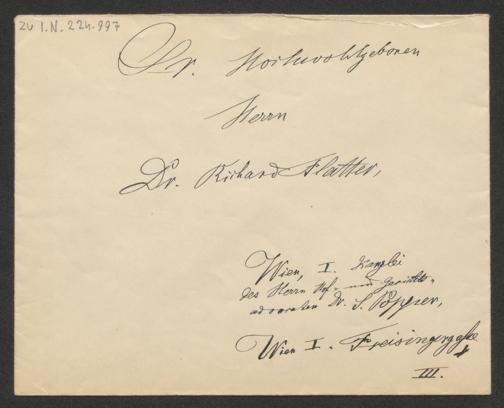 ZU I.N. 224.997
Sr. Hochwohlgeboren
Herrn
Dr. Richard Flatter,
Wien, I. Kanzlei
des Herrn Hof- und Gerichts-
advocaten Dr. S. Popper,
Wien I. Freisingergasse
III.